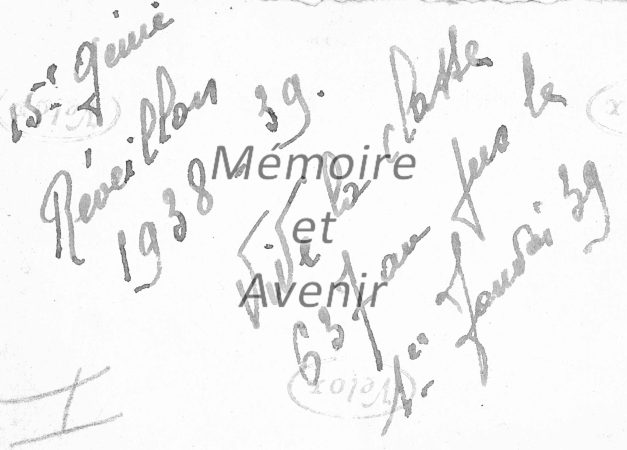 15e génie
Réveillon
1938 - 39.
Vive la classe
63 J au jus le
1er Janvier 39
Mémoire
et
Avenir
Velox
Velox